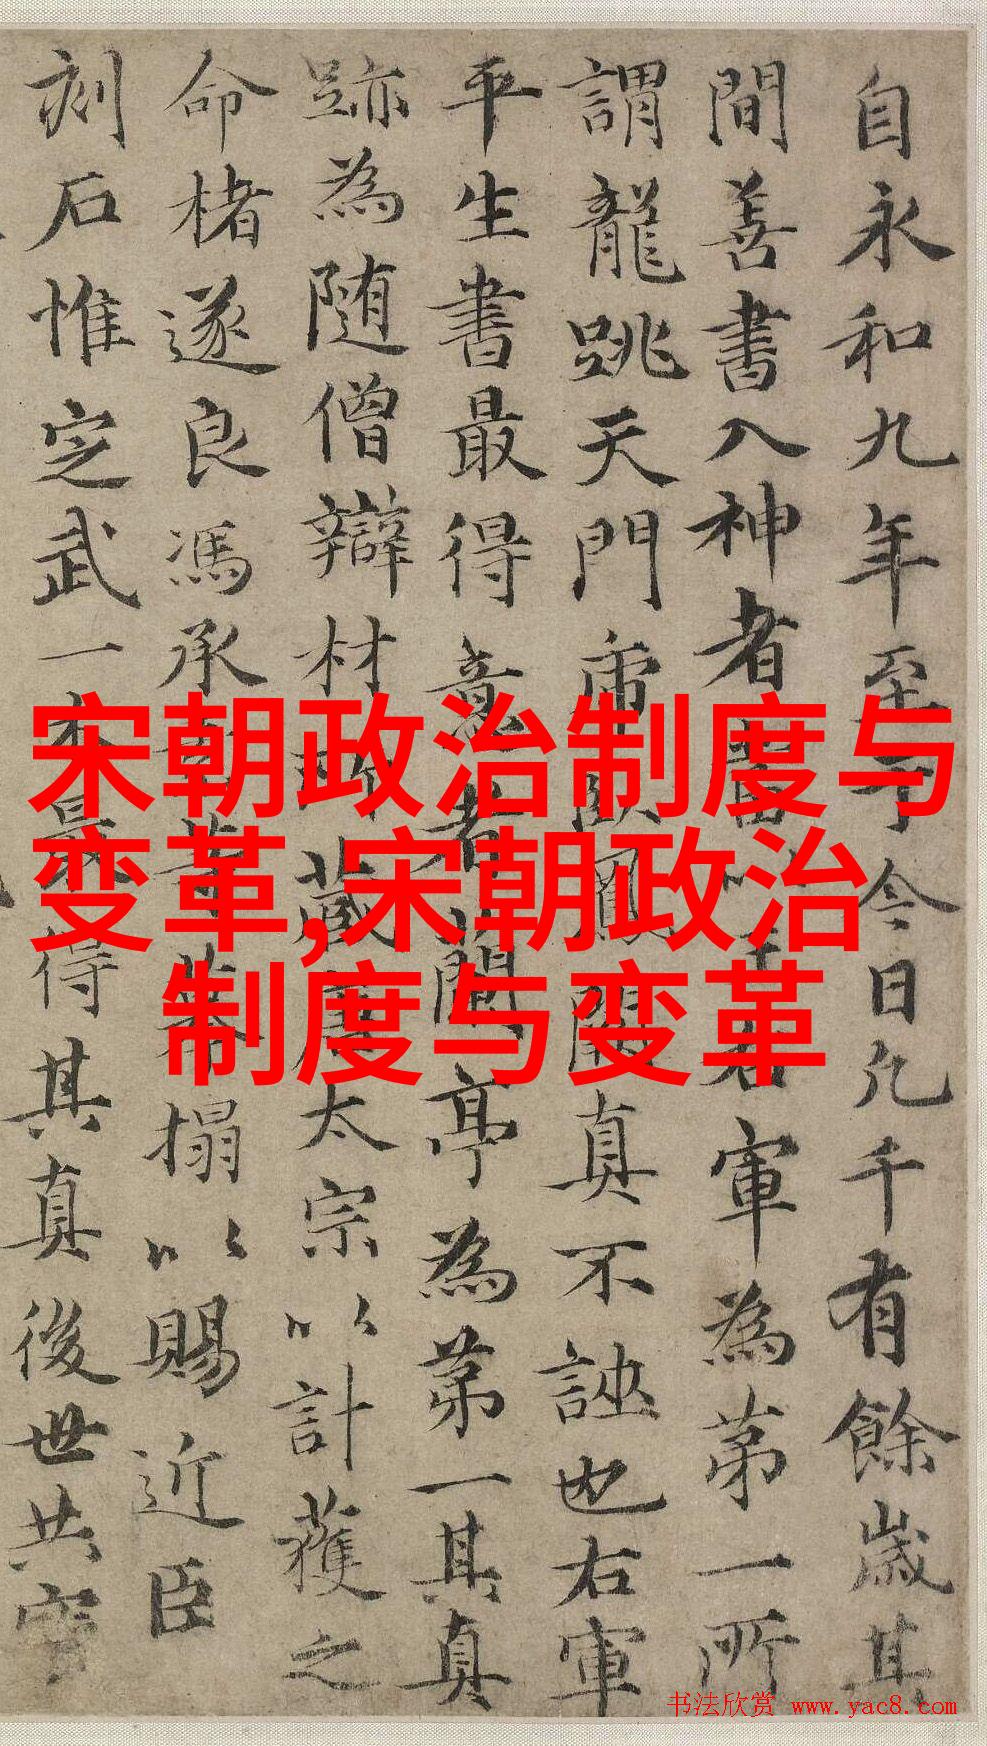 自永和九年至于今日凡千有餘歲其
間善書入神者當以王右軍為第一所
謂龍跳天門臥鳳閣真不誣也右軍
平生書最得意者蘭亭為第一其真
跡為随僧辯材所藏唐太宗以計獲之
命楮遂良馮承素等摹搨以賜近臣
刻石惟定武一本最得其真後世共寳
宋朝政治制度与
变革,宋朝政治
制度与变革
书法欣赏 www.yac8.com